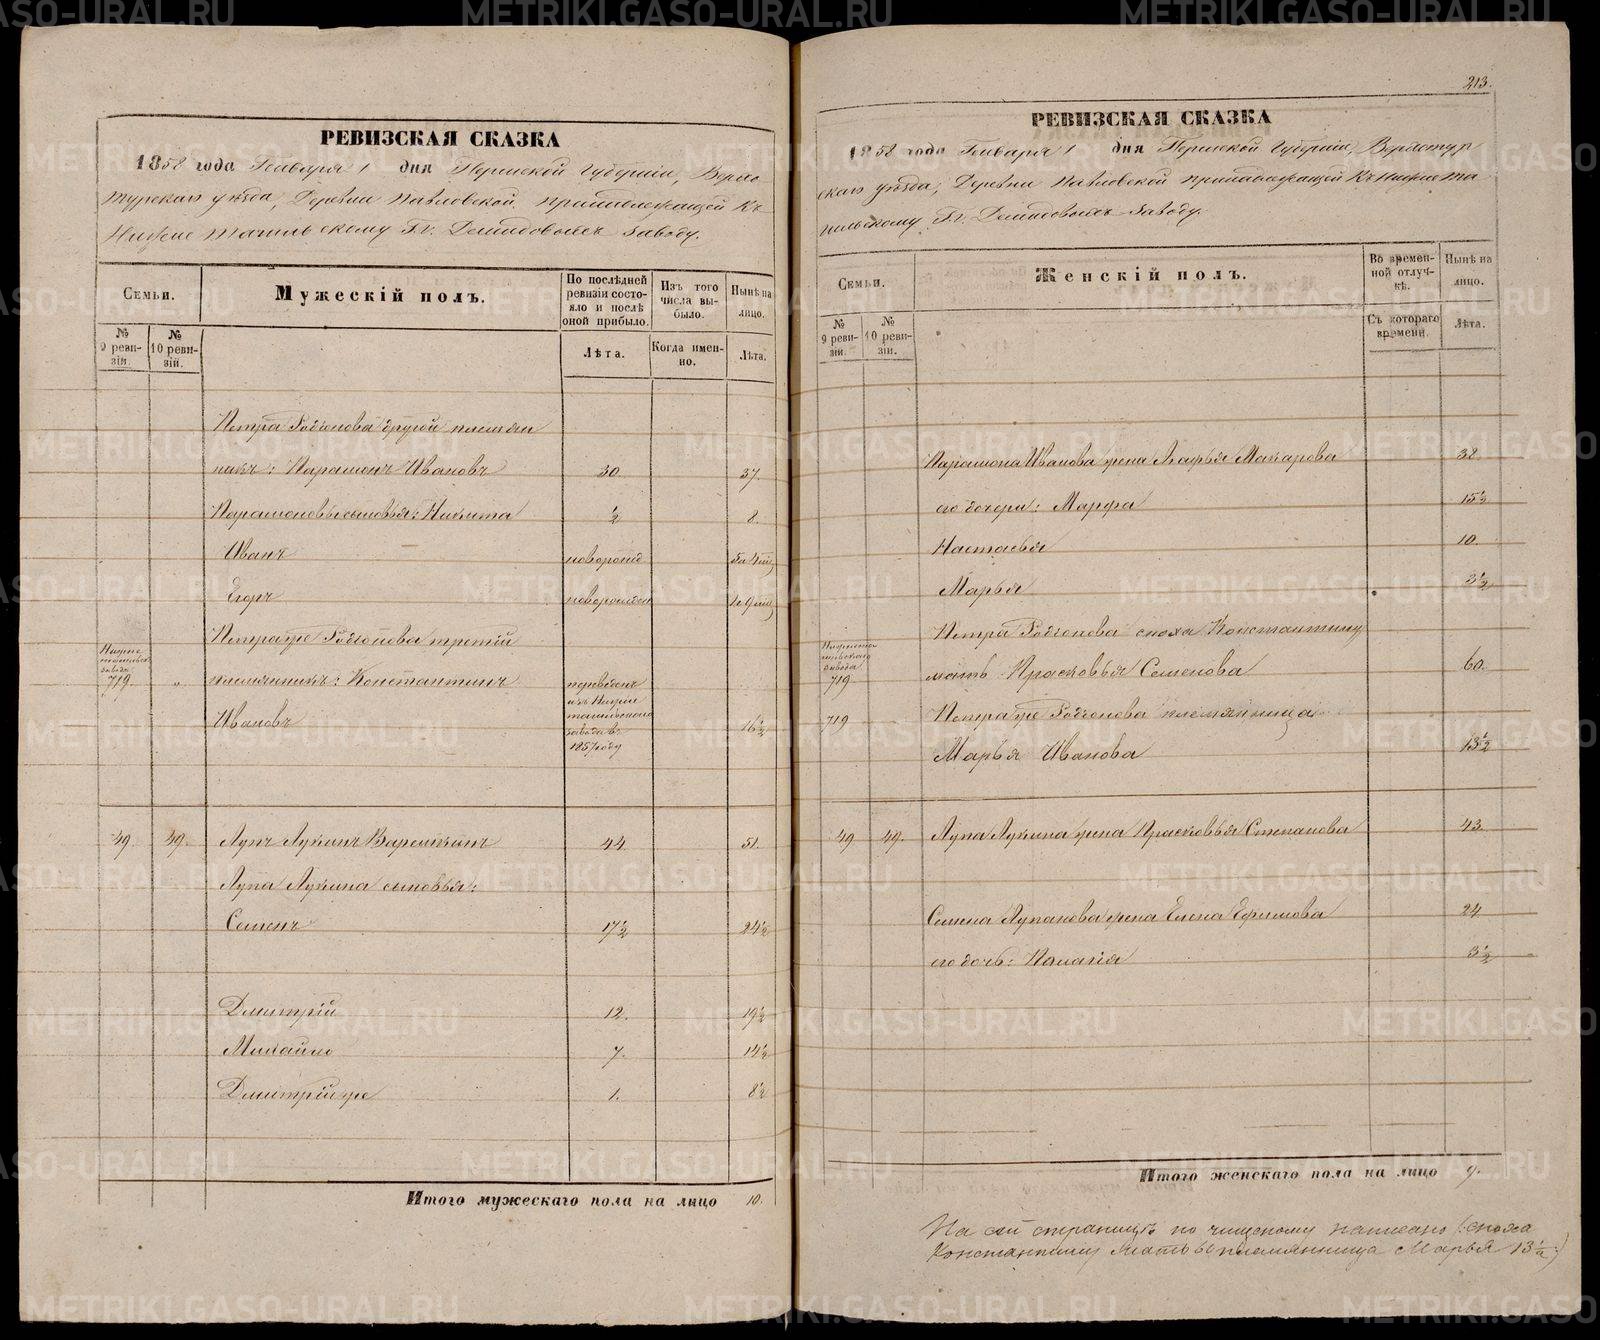 РЕВИЗСКАЯ СКАЗКА
1858 года Генваря 1 дня Пермской Губернии, Верхо
турскаго уѣзда, Деревни Павловской принадлежащей Къ
Нижне Тагильскому Гг. Демидовыхъ Заводу.
Семьи.
№ 9 ревизіи.
№ 10 ревизіи.
Мужескій полъ.
По послѣдней ревизіи состояло и послѣ оной прибыло.
Лѣта.
Изъ того числа выбыло.
Когда именно.
Нынѣ на лицо.
Лѣта.
Петра Родіонова другой племян
никъ: Парамонъ Ивановъ 30. 37.
Парамоновы сыновья: Никита ½ 8.
Иванъ новорожд
Егоръ новорожден
Петра же Родіонова третій
Нижне тагильск завода 719 „ племянникъ: Константинъ
Ивановъ переведенъ изъ Нижне тагильскаго завода въ 1857 году 16½
49. 49. Лупъ Лукинъ 44 51.
Лупа Лукина сыновья:
Семенъ 17½ 24½
Дмитрій 12. 19½
Михайло 7. 14½
Дмитрій же 1. 8½
Итого мужескаго пола на лицо 10.
213.
РЕВИЗСКАЯ СКАЗКА
1858 года Генваря 1 дня Пермской Губерніи, Верхотур
скаго уѣзда, Деревни Павловской принадлежащей Къ Нижнета
гильскому Гг. Демидовыхъ Заводу.
Семьи.
№ 9 ревизіи.
№ 10 ревизіи.
Женскій полъ.
Во временной отлучкѣ.
Съ котораго времени.
Нынѣ на лицо.
Лѣта.
Парамона Иванова жена Агафья Макарова 38.
его дочери: Марфа 15½
Настасья 10.
Марья 3½
Петра Родіонова сноха Константину
Нижнета гильскаго завода 719 мать Прасковья Семенова 60.
719 Петра же Родіонова племянница
Марья Иванова 13½
49 49. Лупа Лукина жена Прасковья Степанова 43.
Семена Лупанова жена Елена Ефимова 24
его дочь: Палагія 3½
Итого женскаго пола на лицо 9.
На сей страницѣ по чищеному написано (сноха
Константину мать 60 племянница Марья 13½)
METRIKI.GASO-URAL.RU